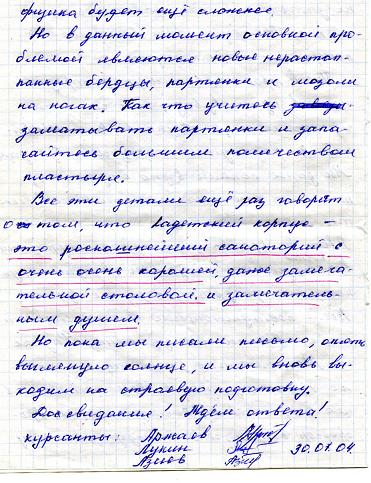 фщика будет ещё сложнее.
Но в данный момент основной про-
блемой являются новые нерастоп-
панные берцы, партянки и мозоли
на ногах. Так что учитесь
заматывать партянки и запа-
сайтесь большим количеством
пластыря.
Все эти детали ещё раз говорят
о том, что Кадетский корпус –
это роскошнейший санаторий с
очень очень хорошей, даже замеча-
тельной столовой и замечатель-
ным душем.
Но пока мы писали письмо, опять
выглянуло солнце, и мы вновь вы-
ходим на строевую подготовку.
Досвидания! Ждём ответа!
курсанты:
Лукин
30.01.04.